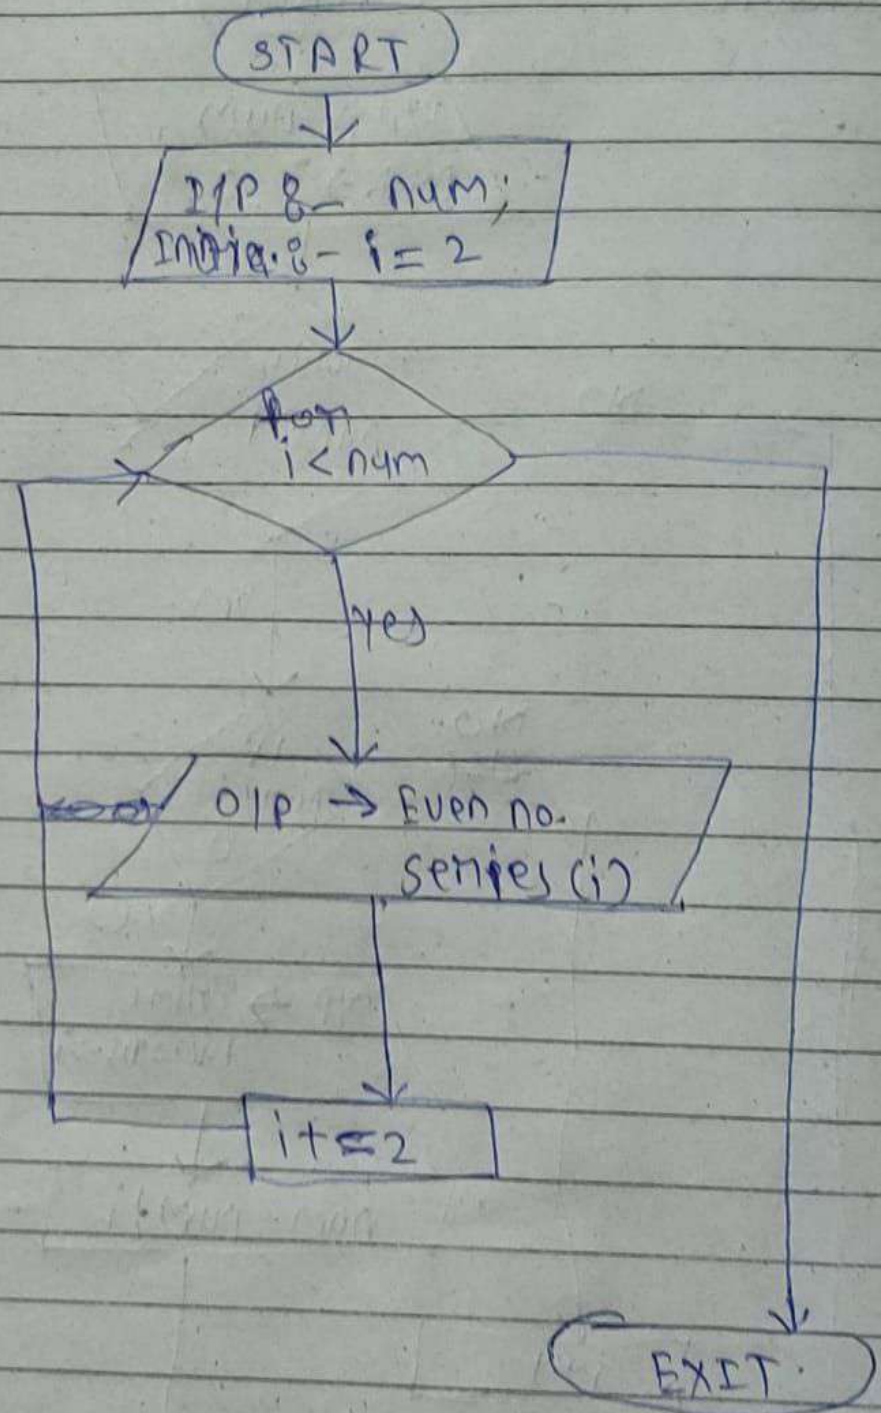 START
I/P :- num;
i = 2
for
i < num
yes
O/P → Even no.
series (i)
i+=2
EXIT.